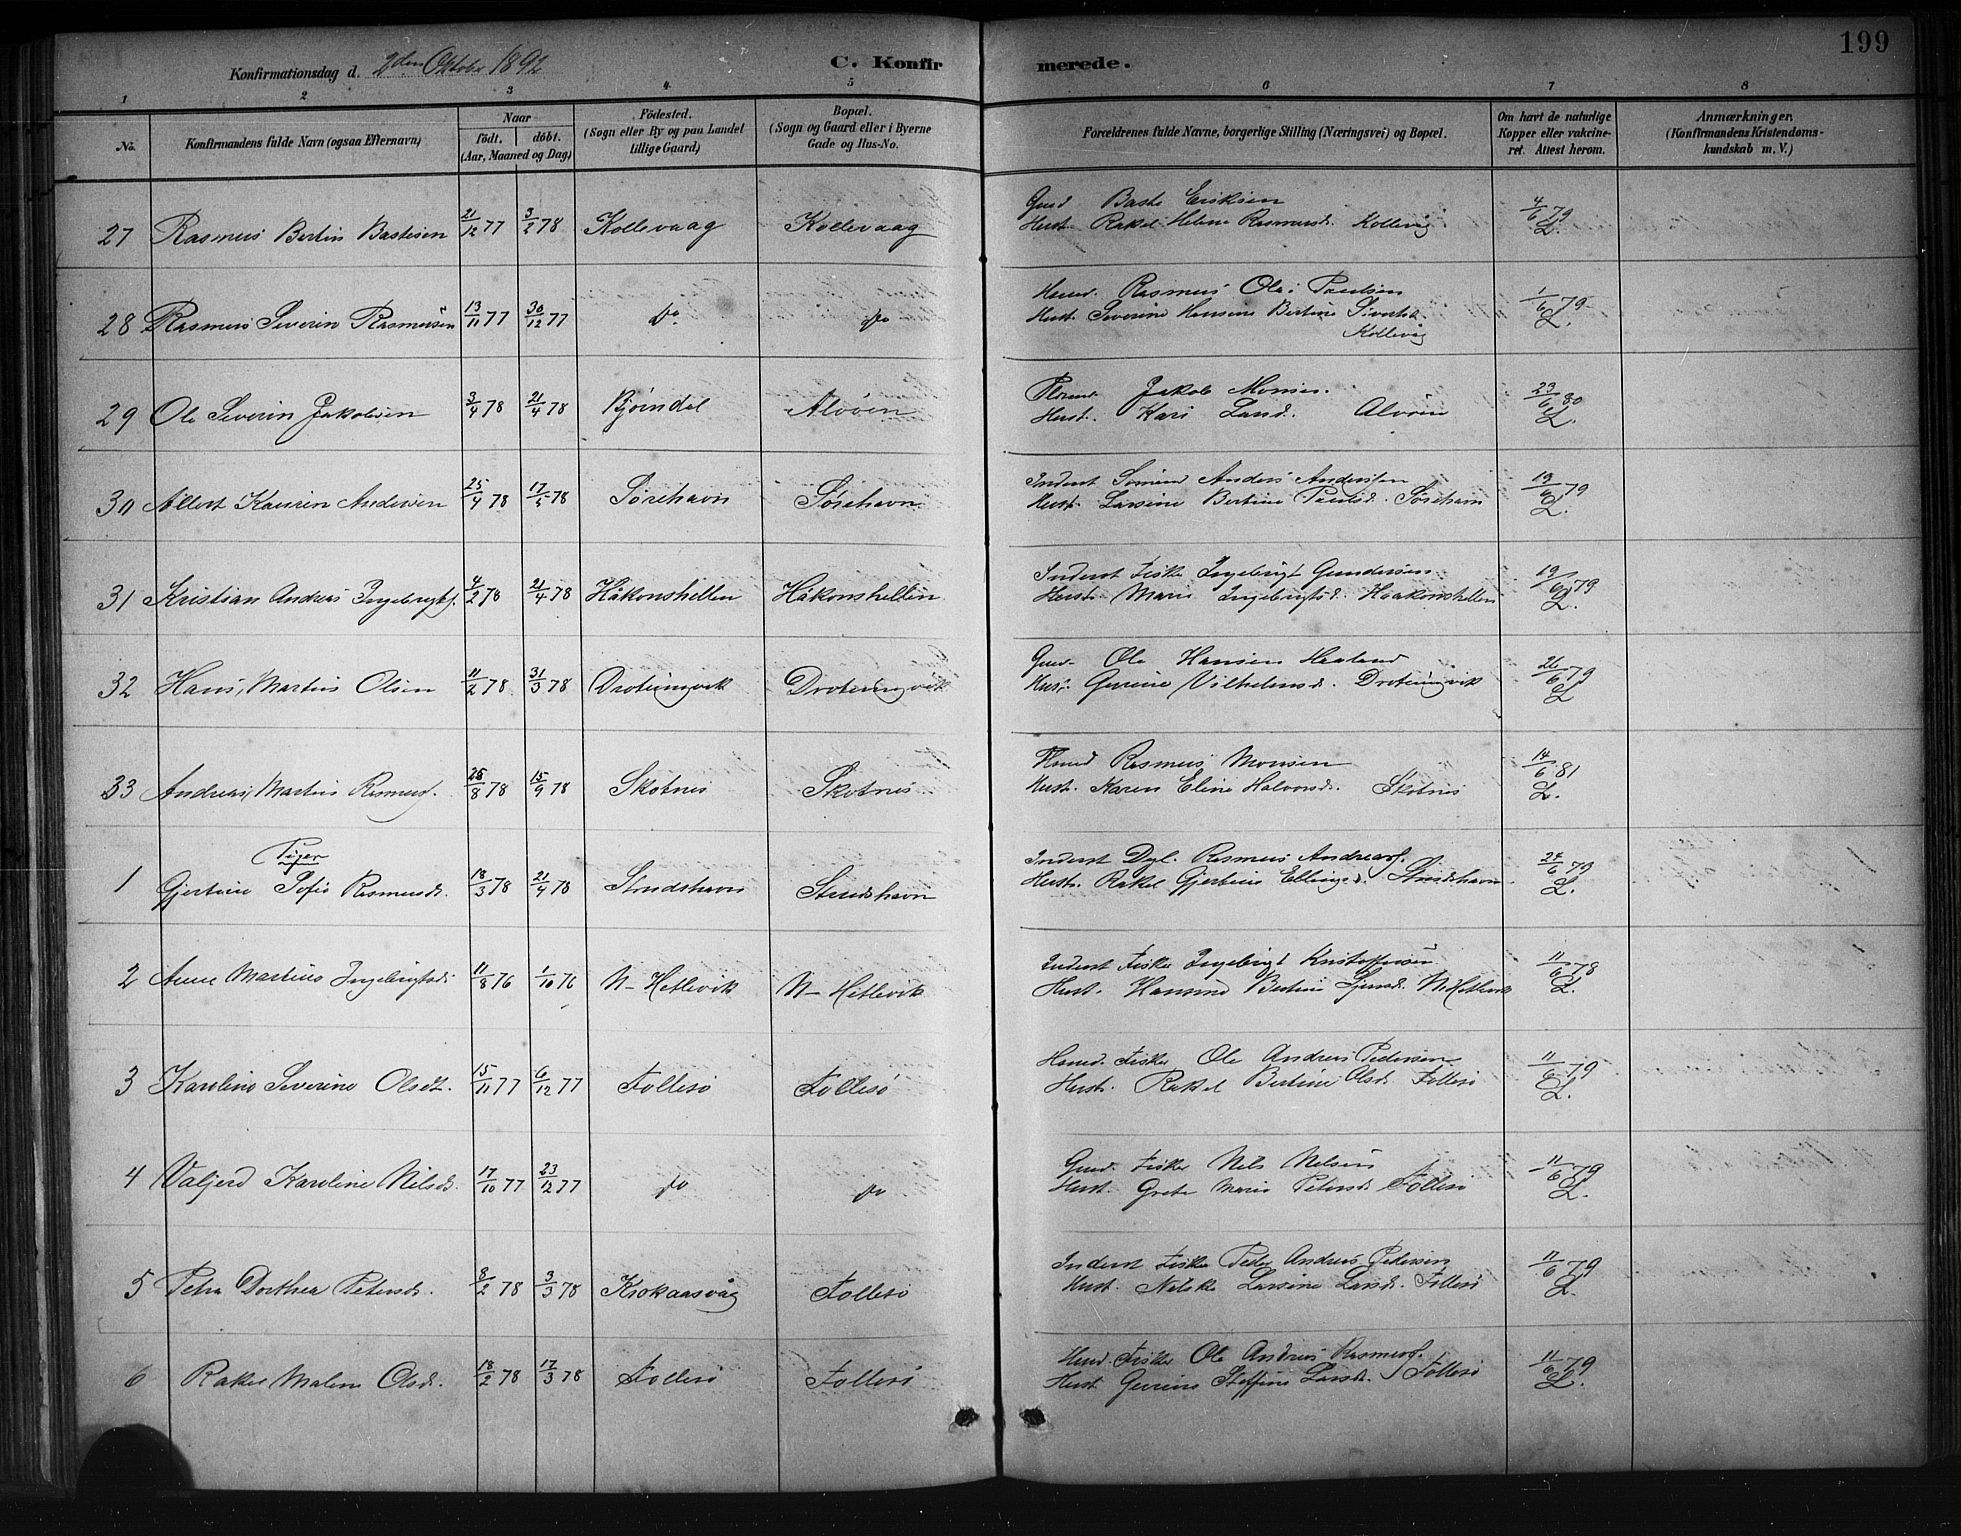 199
Konfirmationsdag d. 2den Oktober 1892 C. Konfirmerede.
1 2 3 4 5 6 7 8
No. Konfirmandens fulde Navn (ogsaa Efternavn) Naar født. døbt. (Aar, Maaned og Dag) Fødested. (Sogn eller By og paa Landet tillige Gaard) Bopæl. (Sogn og Gaard eller i Byerne Gade og Hus-No. Forældrenes fulde Navne, borgerlige Stilling (Næringsvei) og Bopæl. Om havt de naturlige Kopper eller vakcineret. Attest herom. Anmærkninger. (Konfirmandens Kristendomskundskab m. V.)
27 Rasmus Bertin Bastesen 21/12 77 3/2 78 Kollevaag Kollevaag Gmd Baste Eriksen
Hust. Rakel Helene Rasmusd. Kollevåg 4/6 79 L.
28 Rasmus Severin Rasmussen 13/11 77 30/12 77 do do Hmd. Rasmus Olai Paulsen
Hust. Severine Hansine Bertine Sivertsd.
Kollevåg 1/6 79 L.
29 Ole Severin Jakobsen 3/4 78 21/4 78 Bjørndal Aløøen Jakob Monsen.
Hust. Kari Larsd. Alvøen 23/6 80 L.
30 Albert Kaurin Andersen 25/4 78 17/5 78 Sørehavn Sørehavn Inderst Sømand Anders Andersen
Hust. Larsine Bertine Paulsd. Sørehavn 19/6 79 L.
31 Kristian Andreas Ingebrigts. 4/2 78 21/4 78 Håkonshellen Håkonshellen Inderst Fisker Ingebrigt Gundersen
Hust. Marie Ingebrigtsd. Haakonshellen 19/6 79 L.
32 Hans Martin Olsen 11/2 78 31/3 78 Drotningvik Drotningvik Gmd. Ole Hansen Haaland
Hust. Gurine Vilhelmsd. Drotningvik 26/6 79 L
33 Andreas Martin Rasmuss. 25/8 78 15/9 78 Skotnes Skotnes Hmd Rasmus Monsen
Hust. Karen Eline Halvorsd. Skotnes 14/6 81 L.
Piger
1 Gjertine Sofie Rasmusd. 18/3 78 21/4 78 Strudshavn Strudshavn Inderst Dgl. Rasmus Andreass.
Hust. Rakel Gjertine Ellingsd. Strudshavn 24/6 79 L.
2 Anne Martine Ingebrigtsd. 11/8 76 1/10 76 N- Hetlevik N- Hetlevik Inderst Fisker Ingebrigt Kristoffersen
Hust. Hansine Bertine N. Hetlevik 11/6 78 L.
3 Karoline Severine Olsdt. 15/11 77 6/12 77 Follesø Follesø Hmd. Fisker Ole Andreas Pedersen
Hust. Rakel Bertine Olsd. Follesø 11/6 79 L.
4 Valjerd Karoline Nilsd. 17/10 77 23/12 77 do do Gmd. Fisker Nils Nilsen
Hust. Grete Marie Petersd. Follesø 11/6 79 L.
5 Petra Dorthea Petersd. 8/2 78 3/3 78 Krokaasvåg Follesø Inderst Fisker Peder Andreas Pedersen
Hust. Nilske Larsine Larsd. Follesø 11/6 79 L.
6 Rakel Malene Olsd. 18/2 78 17/3 78 Follesø Follesø Hmd. Fisker Ole Andreas Rasmuss.
Hust. Gurine Steffine Larsd. Follesø 11/6 79 L.